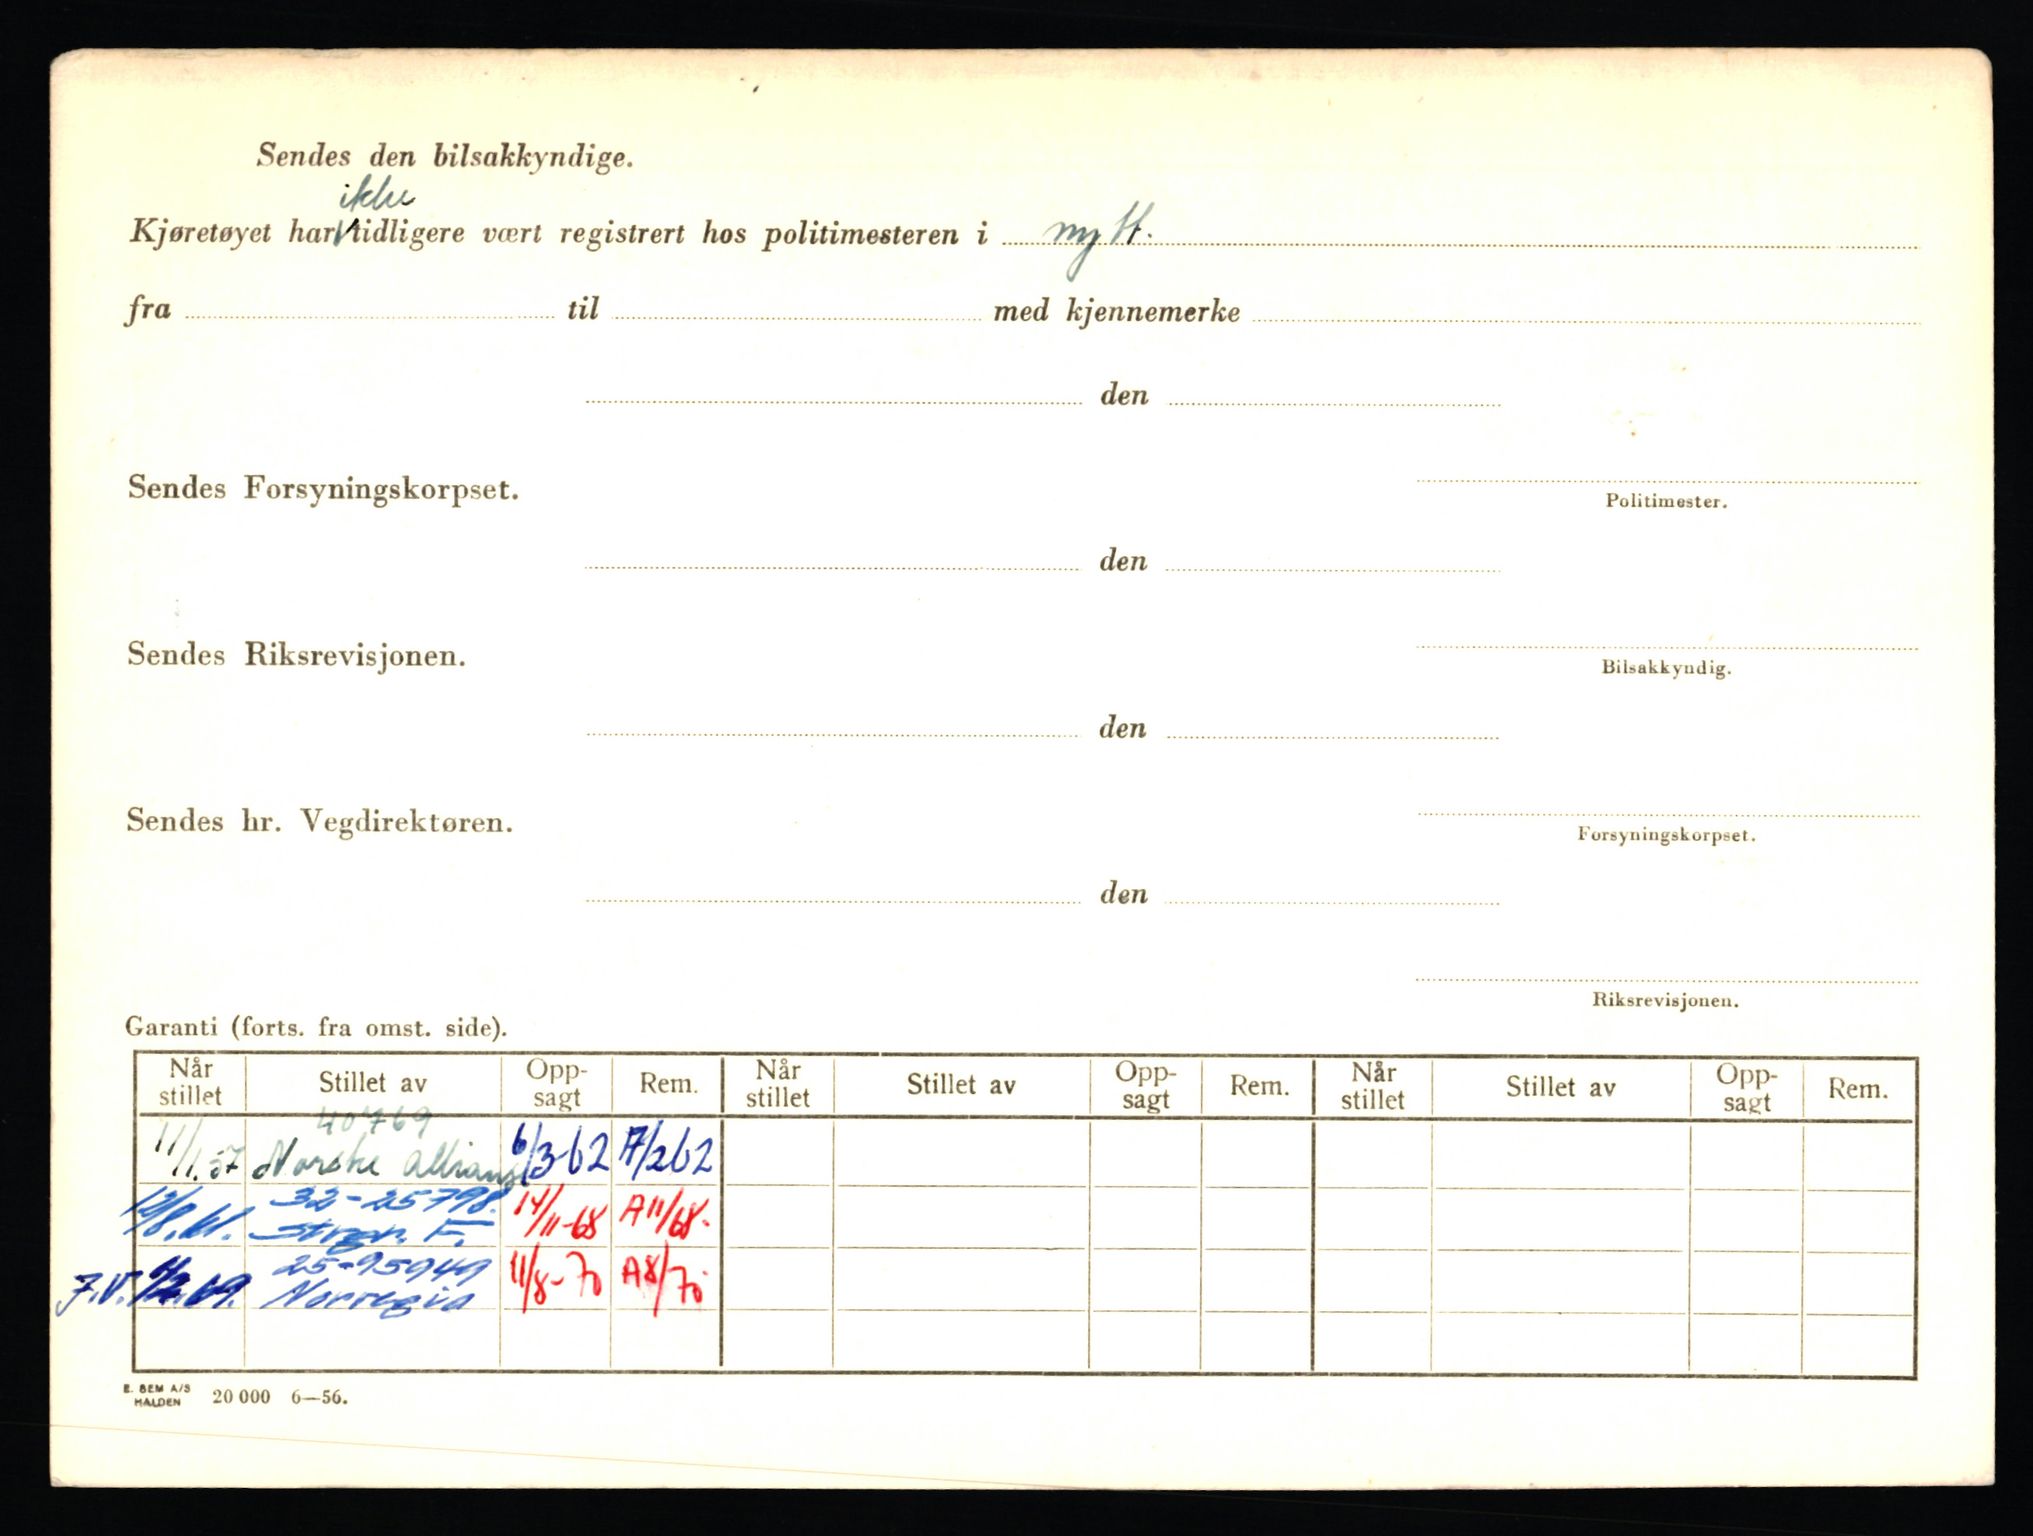 Sendes den bilsakkyndige.
ikke
Kjøretøyet har tidligere vært registrert hos politimesteren i nytt.
fra til med kjennemerke
den
Sendes Forsyningskorpset.
Politimester.
den
Sendes Riksrevisjonen.
Bilsakkyndig.
den
Sendes hr. Vegdirektøren.
Forsyningskorpset.
den
Riksrevisjonen.
Garanti (forts. fra omst. side).
Når stillet Stillet av Opp-sagt Rem. Når stillet Stillet av Opp-sagt Rem. Når stillet Stillet av Opp-sagt Rem.
40769
11/1.57 Norske Allianse 6/3-62 A/262
32-25798.
12/8.61. F. 14/11-68 A11/68.
25-95949
J.V. 69. Norregia 11/8-70 A8/70
E. SEM A/S HALDEN 20 000 6—56.